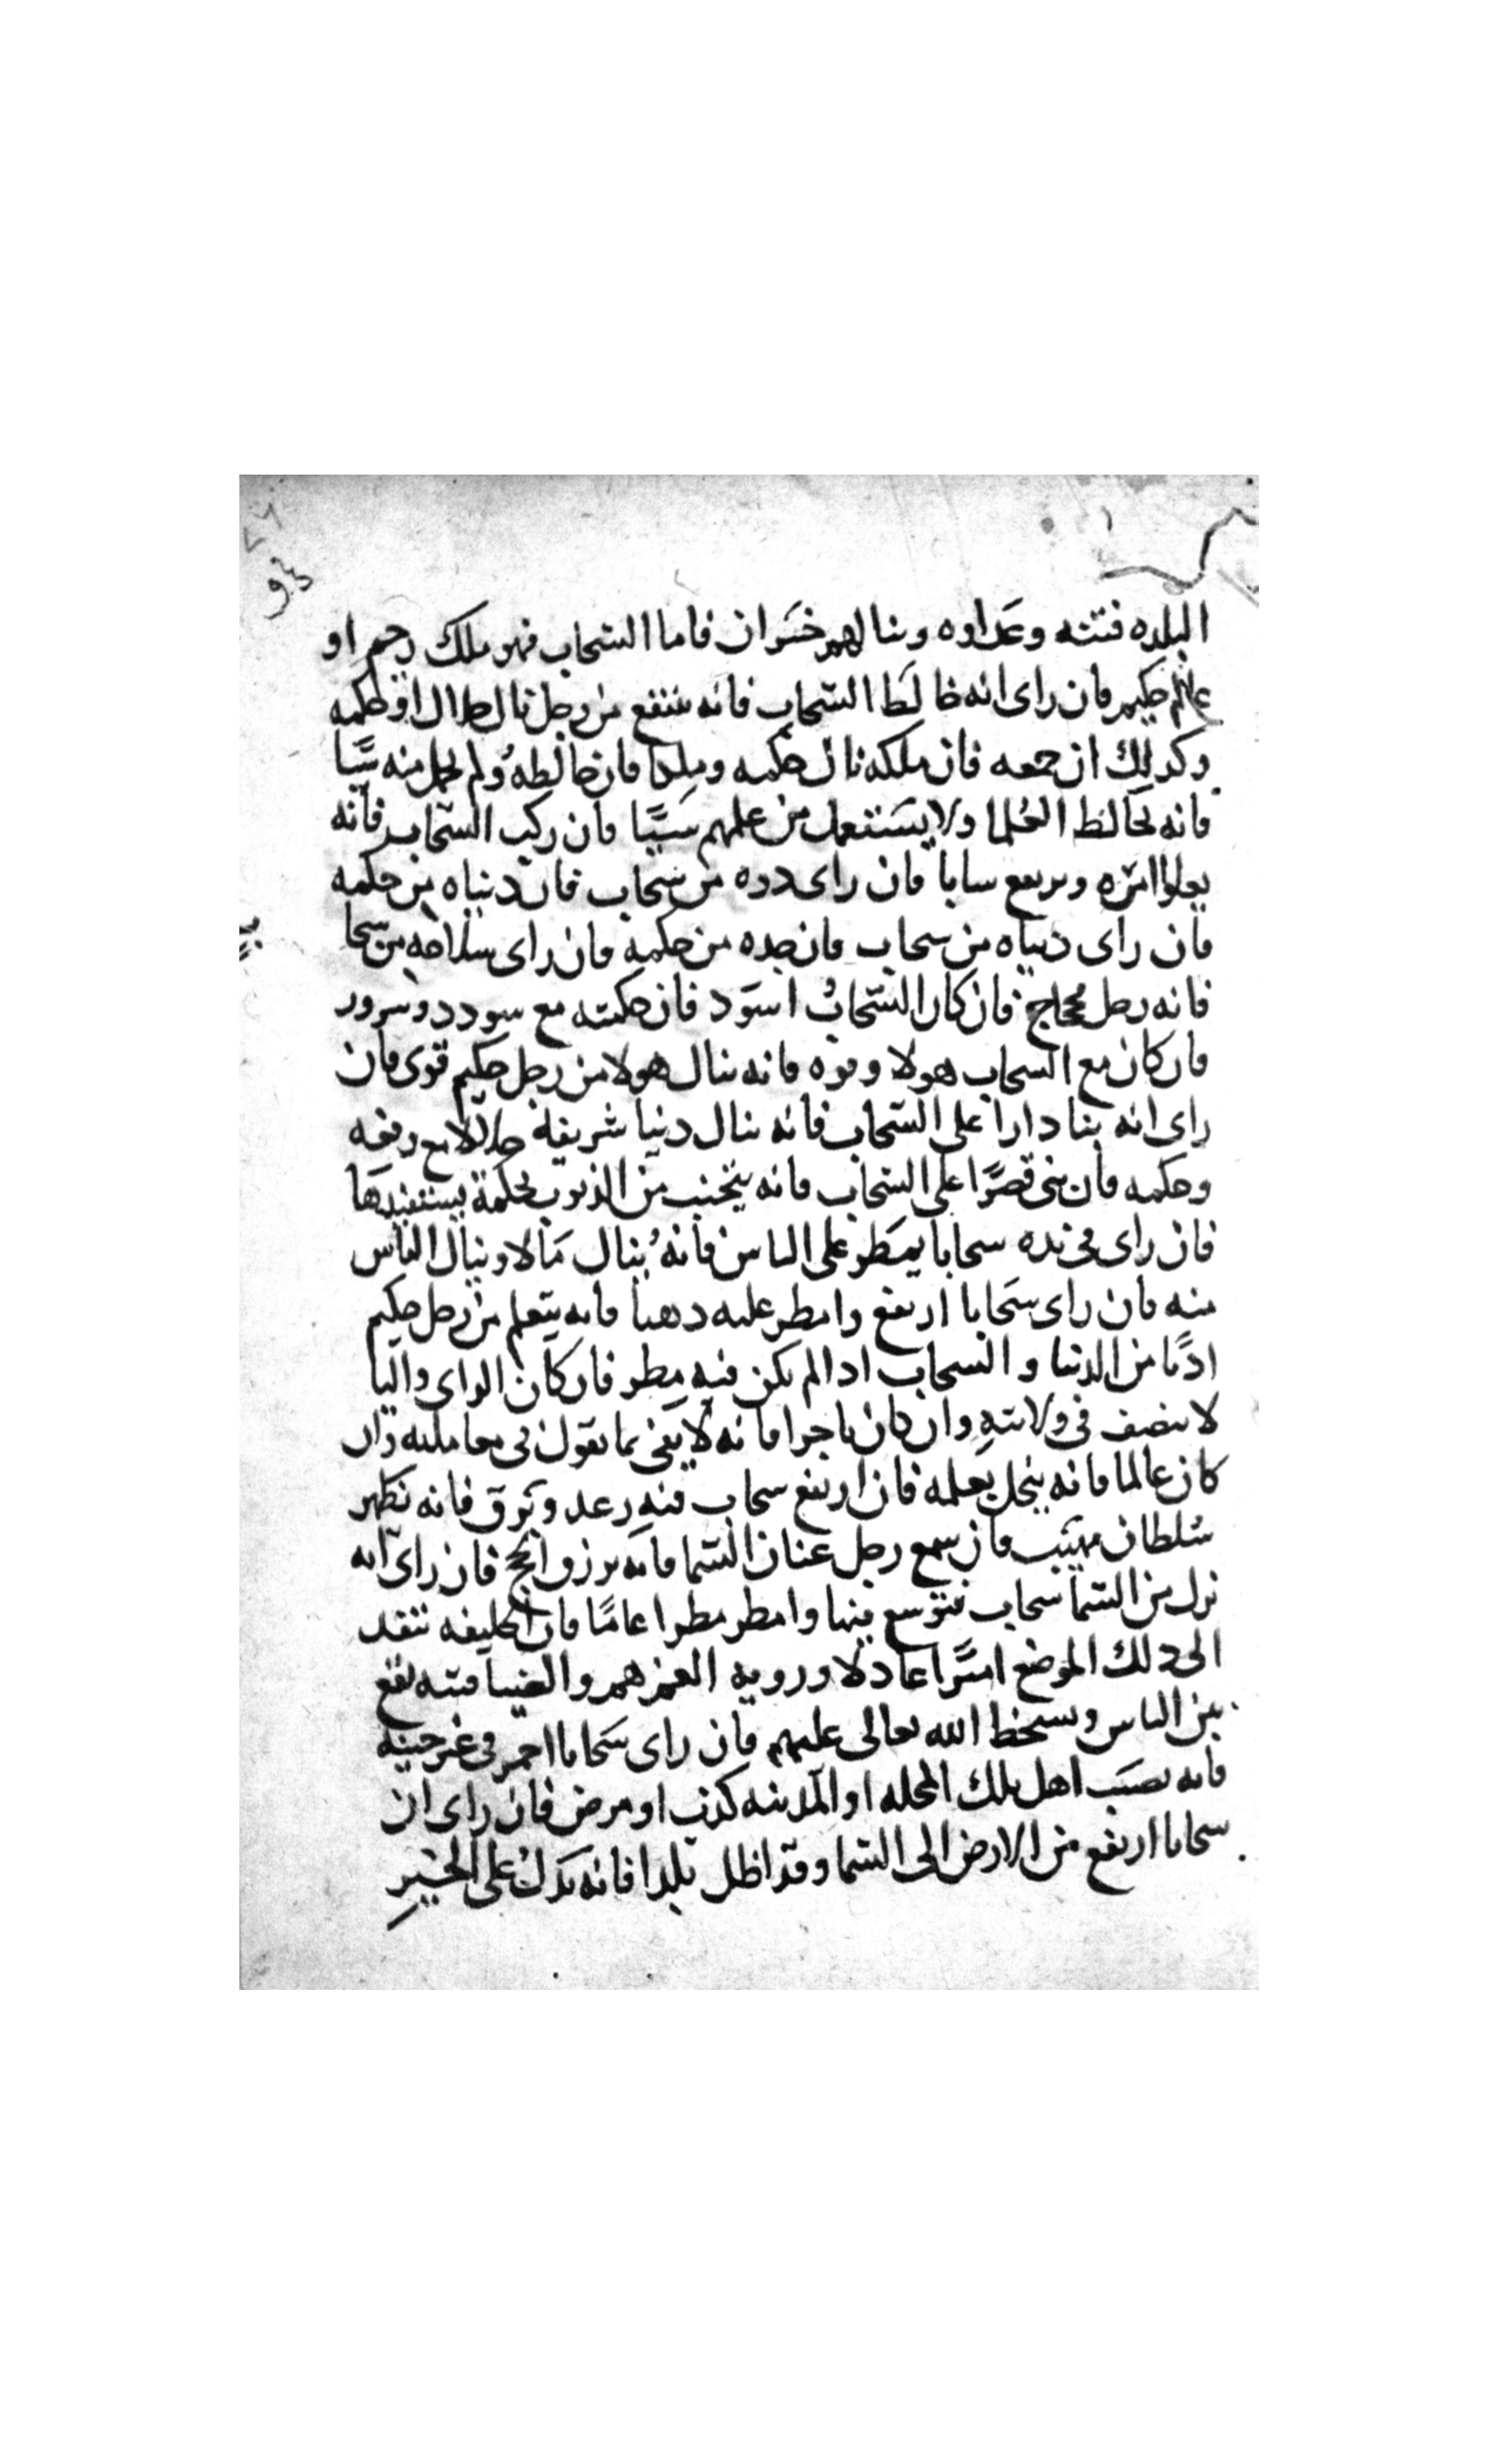 البلده فتنه وعداوه وينالهم خسران فاما السحاب فهو ملك رحيم او
عالم حكيم فان راى انه خالط السحاب فانه ينتفع من رجل نال او حكمه
وكذلك ان جمعه فان ملكه نال حكمه وملكا فان خالطه ولم يحمل منه شيا
فانه يخالط العلما ولا يستعمل من علمهم شيا فان ركب السحاب فانه
يعلوا امره ويرتفع فان راى درده من سحاب فان دنياه من حكمه
فان راى دنياه من سحاب فان جده من حكمه فان راى سلاحه من سحا
فانه رجل محجاج فان كان السحاب اسود فان حكمته مع سودد وسرور
فان كان مع السحاب هولا وقوه فانه ينال هولا من رجل حكيم قوى فان
راى انه بنا دارا على السحاب فانه ينال دنيا شريفة حلالا مع رفعه
وحكمه فان بنى قصرا على السحاب فانه يتجنب من الذنوب بحكمة يستفيدها
فان راى فى يده سحابا يمطر على الناس فانه ينال مالا وينال الناس
منه فان راى سحابا ارتفع وامطر عليه دهبا فانه يتعلم من رجل حكيم
ادبا من الدنيا والسحاب ادا لم يكن فيه مطر فان كان الراى واليا
لا ينصف فى ولايته وان كان تاجرا فانه لا يفى بما يقول فى معامليه وان
كان عالما فانه يبخل بعلمه فان ارتفع سحاب فيه رعد وبرق فانه يظهر
سلطان مهيب فان سمع رجل عنان السما فانه يرزق الحج فان راى انه
نزل من السما سحاب فتوسع فيها وامطر مطرا عاما فان الخليفه ينفد
الى دلك الموضع اميرا عادلا ورويه الغيم هم والضباب فتنه تقع
بين الناس وسخط الله تعالى عليهم فان راى سحابا احمر فى غير حينه
فانه يصيب اهل تلك المحله او المدينه كرب او مرض فان راى ان
سحابا ارتفع من الارض الى السما وقد اظل بلدا فانه يدل على الخير